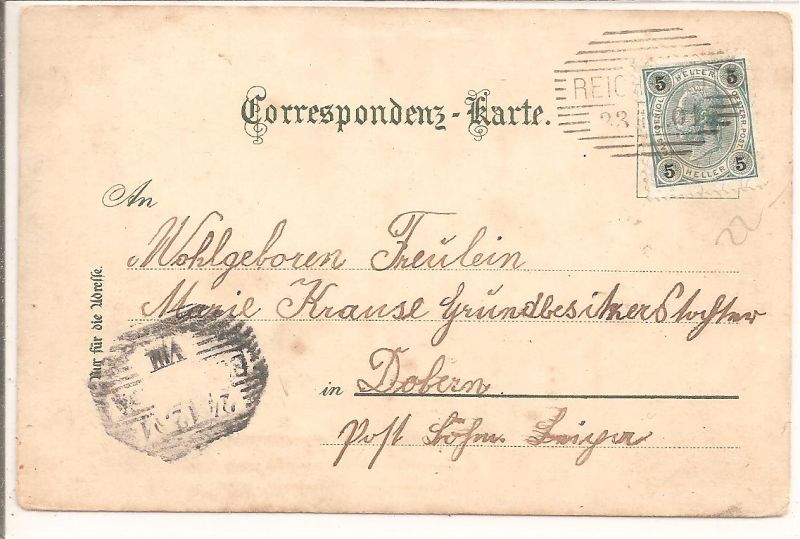 Correspondenz-Karte.
REIC
23
5 HELLER 5
5 HELLER 5
22
An
Wohlgeboren Freulein
Marie Krause Grundbesitzerstochter
in Dobern
Post Böhm. Leipa
Nur für die Adresse.
VIII
24.12.01